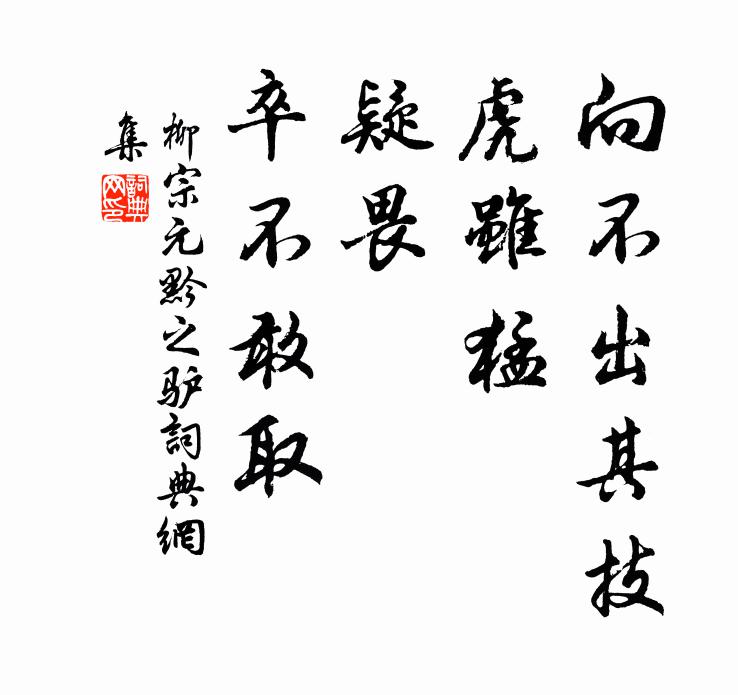 向不出其技
虎雖猛
疑畏
卒不敢取
柳宗元黔之驴詞典網
集
詞典
网印